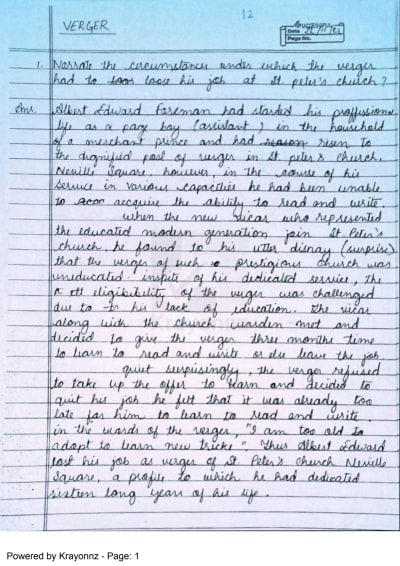 12
VERGER
SUCCESSFUL
Date
Page No.
1. Narrate the circumstances under which the verger
had to loose his job at St. peter's church?
Ans. Albert Edward Foreman had started his proffessional
life as a page boy (assistant) in the household
of a merchant prince and had risen to
the dignified post of verger in St peter's Church,
Neville Square, however, in the course of his
service in various capacities he had been unable
to accquire the ability to read and write.
when the new vicar who represented
the educated modern generation join St. Peter's
church, he found to his utter dismay (surprise)
that the verger of such a prestigious church was
uneducated. inspite of his dedicated service, the
eligibility of the verger was challenged
due to his lack of education. The vicar
along with the church warden met and
decided to give the verger three months time
to learn to read and write or else leave the job.
quiet surpisingly, the verger refused
to take up the offer to learn and decided to
quit his job he felt that it was already too
late for him to learn to read and write.
in the words of the verger, "I am too old to
adopt to learn new tricks". Thus Albert Edward
lost his job as verger of St. Peter's Church Neville
Square, a profile to which he had dedicated
sixteen long years of his life.
Powered by Krayonnz - Page: 1